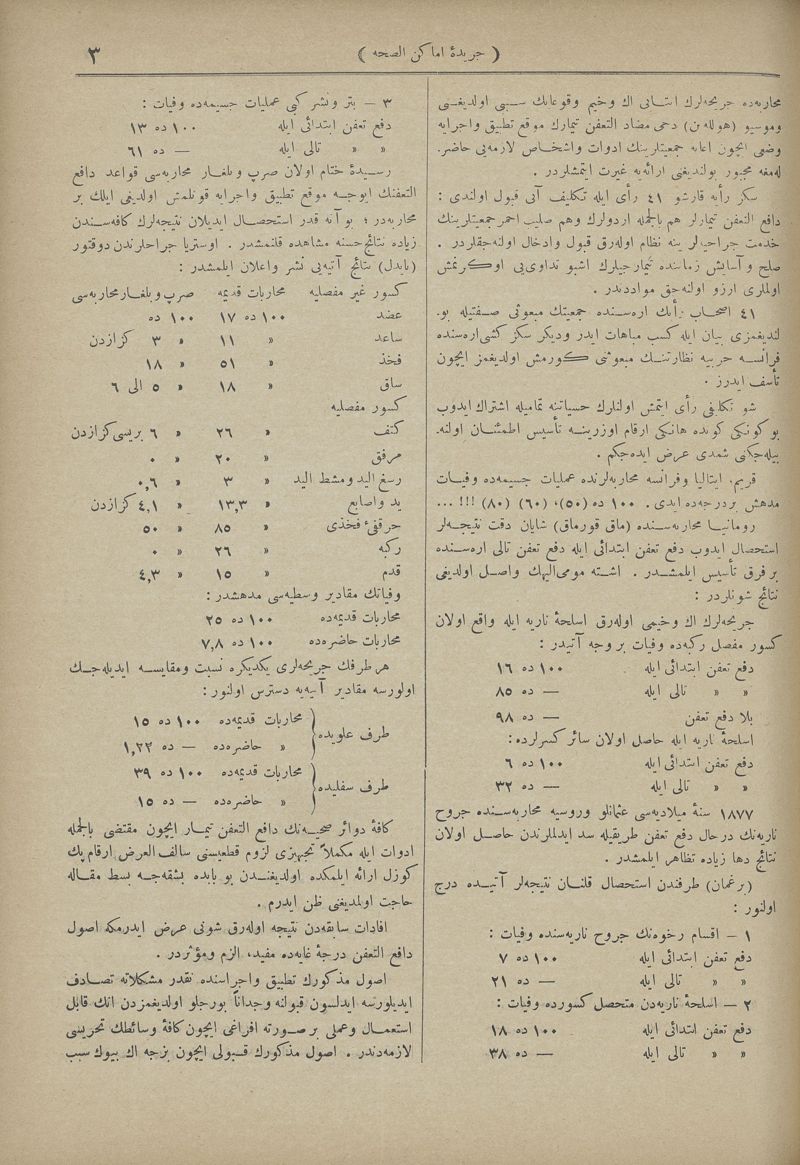 ( جریدهٔ اماكن الصحه ) ٣
محاربه‌ده جریحه‌لرك انتانی اك وخیم وقوعاتك سببی اولدیغنی
وموسیو (هولله‌ن) دخی مضاد التعفن تیمارك موقع تطبیق واجرایه
وضعی ایچون اعانه جمعیتلرینك ادوات واشخاص لازمه‌یی حاضر.
له‌مغه مجبور بولندیغنی ارائه‌یه غیرت ایتمشلردر .
سكز رأیه قارشو ٤١ رأی ایله تكلیف آتی قبول اولندی :
دافع التعفن تیمارلر هم بالجمله اردولرك وهم صلیب احمر جمعیتلرینك
خدمت جراحیه‌لرینه نظام اوله‌رق قبول وادخال اوله‌جقلردر .
صلح وآسایش زماننده تیمارجیلرك اشبو تداوی‌یی اوكرنمش
اولملری آرزو اوله‌جق موادندر .
٤١ اصحاب رأیك آره‌سنده جمعیتك مبعوثی صفتیله بو.
لندیغمزی بیان ایله كسب مباهات ایدر ودیكر سكز كشی اره‌سنده
فرانسه حربیه نظارتنك مبعوثنی كورمش اولدیغمز ایچون
تأسف ایدرز .
شو تكلیفی رأی ایتمش اولنلرك حسیاتنه تمامیله اشتراك ایدوب
بو كونكی كونده هانكی ارقام اوزرینه تأسیس اطمئنان اولنه.
بیله‌جكنی شمدی عرض ایده‌جكم .
قریم، ایتالیا وفرانسه محاربه‌لرنده عملیات جسیمه‌ده وفیات
مدهش بر درجه‌ده ایدی . ١٠٠ ده (٥٠)، (٦٠) (٨٠) !!! ...
رومانیا محاربه‌سنده (ماق قورماق) شایان دقت نتیجه‌لر
استحصال ایدوب دفع تعفن ابتدائی ایله دفع تعفن تالی اره‌سنده
بر فرق تأسیس ایلمشدر . اشته مومی‌الیهك واصل اولدیغی
نتایج شونلردر :
جریحه‌لرك اك وخیمی اوله‌رق اسلحهٔ ناریه ایله واقع اولان
كسور مفصل ركبه‌ده وفیات بر وجه آتیدر :
دفع تعفن ابتدائی ایله ١٠٠ ده ١٦
« « تالی ایله — ده ٨٥
بلا دفع تعفن — ده ٩٨
اسلحهٔ ناریه ایله حاصل اولان سائر كسرلرده :
دفع تعفن ابتدائی ایله ١٠٠ ده ٦
« « تالی ایله — ده ٣٢
١٨٧٧ سنهٔ میلادیه‌سی عثمانلو وروسیه محاربه‌سنده جروح
ناریه‌نك درحال دفع تعفن طریقیله سد ایدلملرندن حاصل اولان
نتایج دها زیاده تظاهر ایلمشدر .
(برغمان) طرفندن استحصال قلنان نتیجه‌لر آتیده درج
اولنور :
١ – اقسام رخوه‌نك جروح ناریه‌سنده وفیات :
دفع تعفن ابتدائی ایله ١٠٠ ده ٧
« « تالی ایله — ده ٢١
٢ – اسلحهٔ ناریه‌دن متحصل كسورده وفیات :
دفع تعفن ابتدائی ایله ١٠٠ ده ١٨
« « تالی ایله — ده ٣٨
٣ – بتر ونشر كبی عملیات جسیمه‌ده وفیات :
دفع تعفن ابتدائی ایله ١٠٠ ده ١٣
« « تالی ایله — ده ٦١
رسیدهٔ ختام اولان صرب وبلغار محاربه‌سی قواعد دافع
التعفنك ایوجه موقع تطبیق واجرایه قونلمش اولدیغی ایلك بر
محاربه‌در ؛ بو آنه قدر استحصال ایدیلان نتیجه‌لرك كافه‌سندن
زیاده نتایج حسنه مشاهده قلنمشدر . اوستریا جراحلرندن دوقتور
(بایدل) نتایج آتیه‌یی نشر واعلان ایلمشدر :
كسور غیر مفصلیه محاربات قدیمه صرب وبلغار محاربه‌سی
عضد ١٠٠ ده ١٧ ١٠٠ ده
ساعد « ١١ « ٣ كزازدن
فخذ « ٥١ « ١٨
ساق « ١٨ « ٥ الی ٦
كسور مفصلیه
كتف « ٢٦ « ٦ بریسی كزازدن
مرفق « ٢٠ « ٠
رسغ الید ومشط الید « ٣ « ٠,٦
ید واصابع « ١٣,٣ « ٤,١ كزازدن
حرقفیٔ فخذی « ٨٥ « ٥٠
ركبه « ٢٦ « ٠
قدم « ١٥ « ٤,٣
وفیاتك مقادیر وسطیه‌سی مدهشدر :
محاربات قدیمه‌ده ١٠٠ ده ٢٥
محاربات حاضره‌ده ١٠٠ ده ٧,٨
هر طرفك جریحه‌لری یكدیكره نسبت ومقایسه ایدیله‌جك
اولورسه مقادیر آتیه‌یه دسترس اولنور :
طرف علویده { محاربات قدیمه‌ده ١٠٠ ده ١٥
« حاضره‌ده — ده ١,٢٢
طرف سفلیده { محاربات قدیمه‌ده ١٠٠ ده ٣٩
« حاضره‌ده — ده ١٥
كافهٔ دوائر صحیه‌نك دافع التعفن تیمار ایچون مقتضی بالجمله
ادوات ایله مكملاً تجهیزی لزوم قطعیسنی سالف العرض ارقام پك
كوزل ارائه ایلمكده اولدیغندن بو بابده بشقه‌جه بسط مقاله
حاجت اولمدیغنی ظن ایدرم .
افادات سابقه‌دن نتیجه اوله‌رق شونی عرض ایدرمكه اصول
دافع التعفن درجهٔ غایه‌ده مفید، الزم ومؤثردر .
اصول مذكورك تطبیق واجراسنده نقدر مشكلاته تصادف
ایدیلورسه ایدلسون قبولنه وجداناً بورجلو اولدیغمزدن آنك قابل
استعمال وعملی بر صورته افراغی ایچون كافهٔ وسائطك تحریسی
لازمه‌دندر . اصول مذكورك قبولی ایچون بزجه اك بیوك سبب